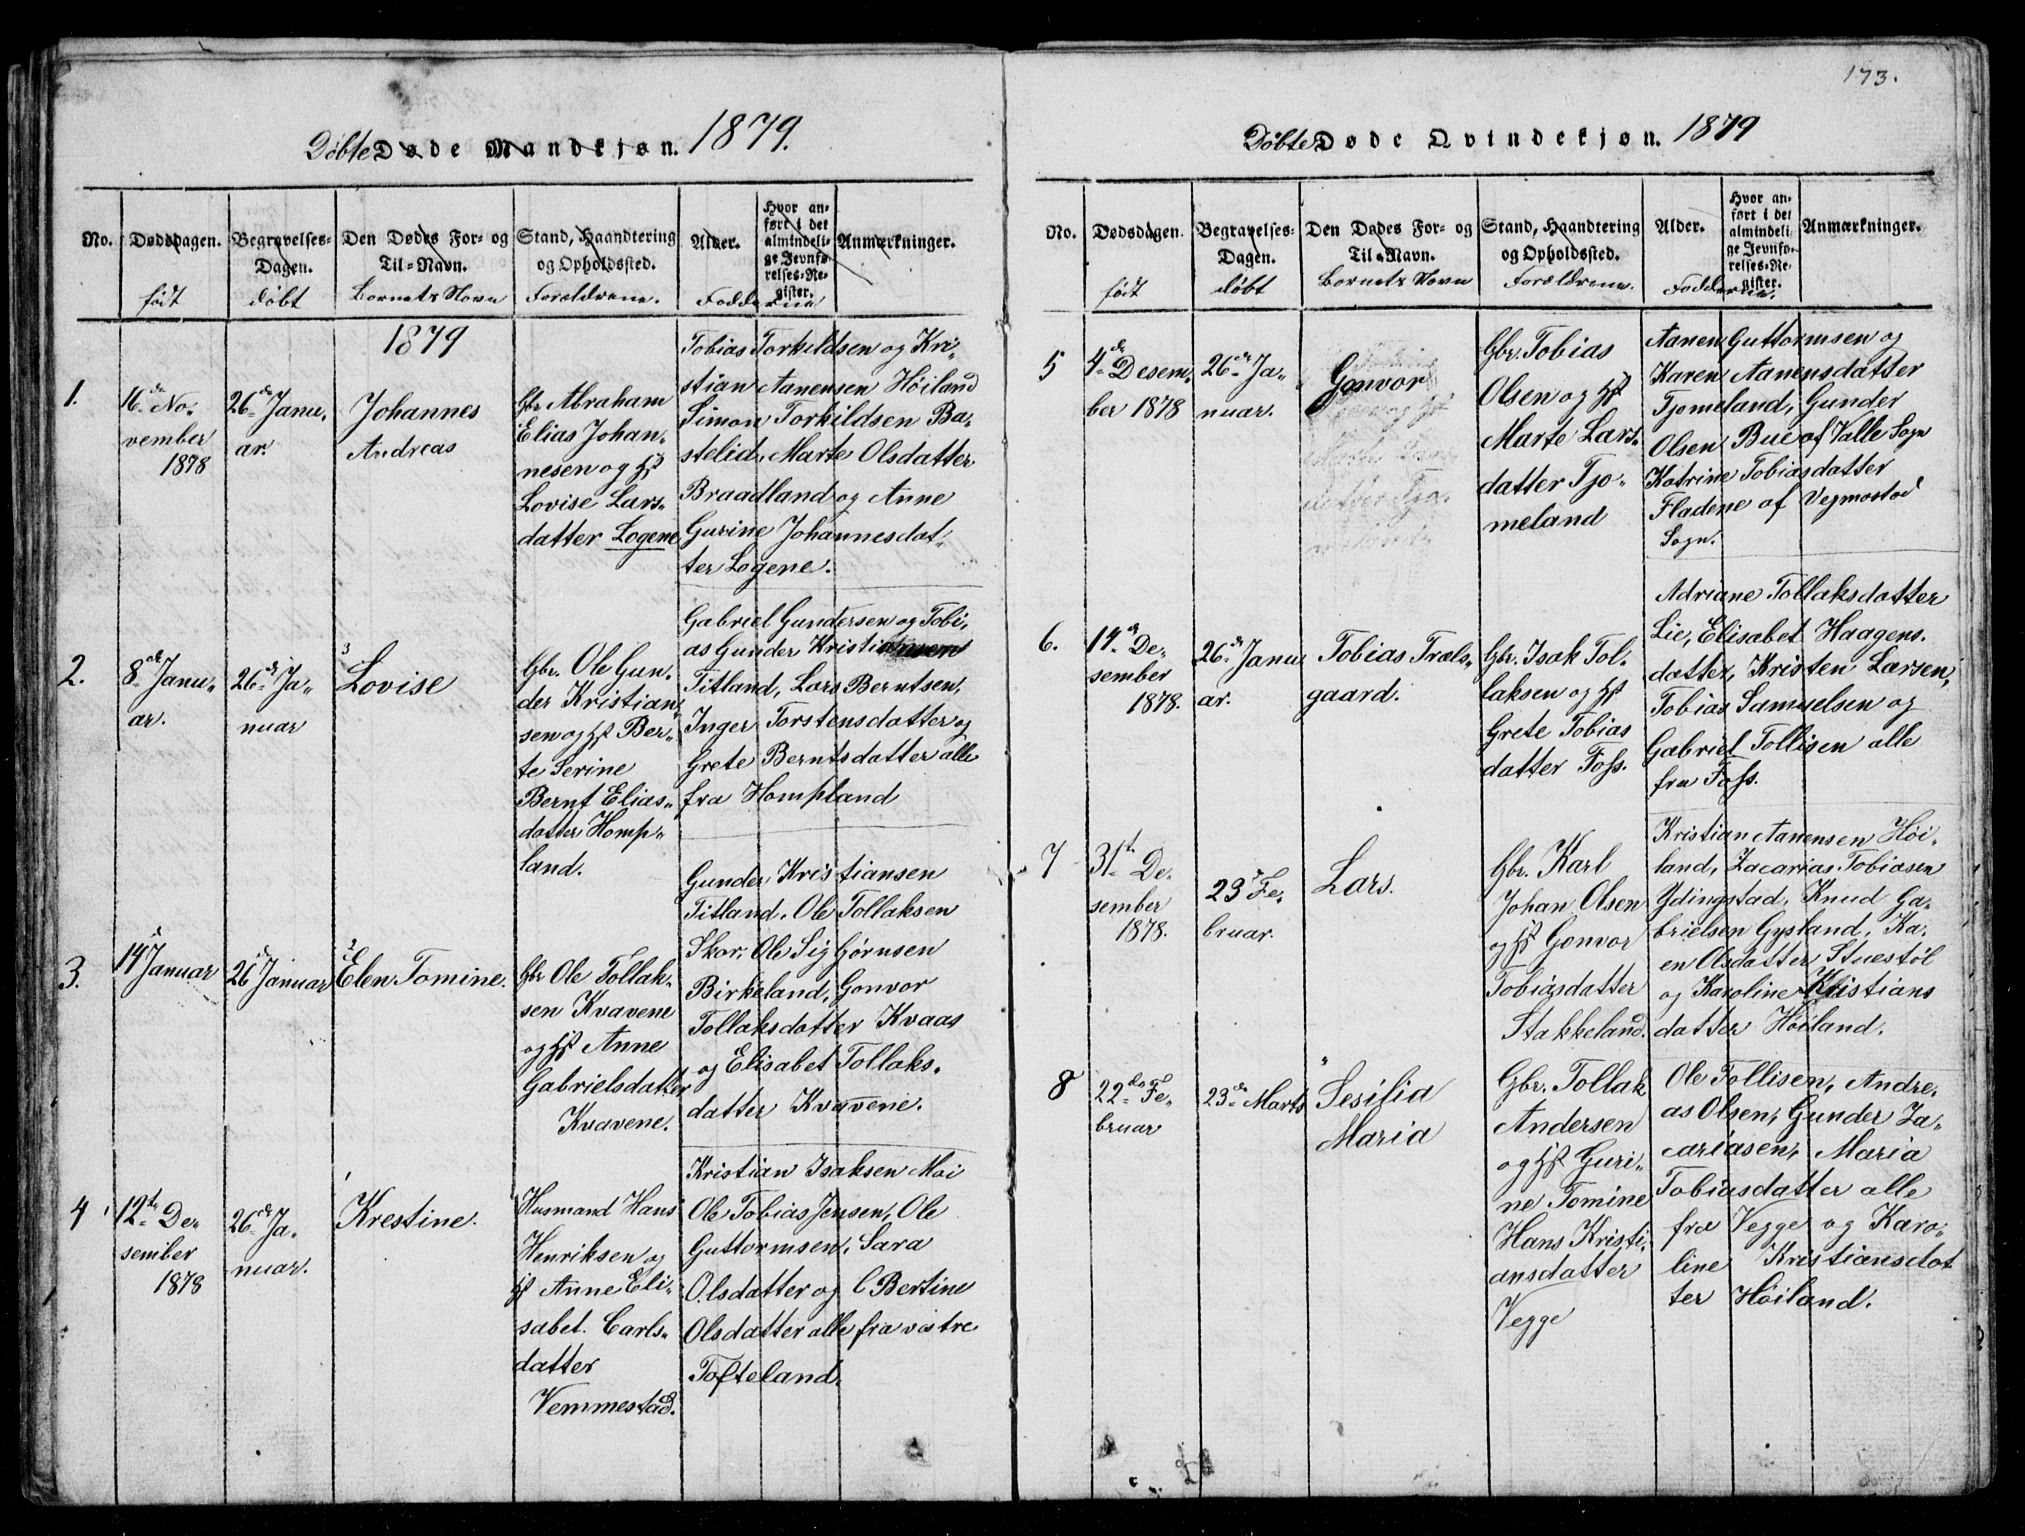 173.
Døbte Døde Mandkjøn. 1879.
No.
Dødsdagen.
født
Begravelses-
Dagen.
døbt
Den Dødes For- og
Til-Navn.
Barnets Navn
Stand, Haandtering
og Opholdssted.
Forældrene.
Alder.
Hvor an-
ført i det
almindeli-
ge Jevnfø-
relses-Re-
gister.
Fadderne
Anmærkninger.
1879
1.
16de No-
vember
1878
26de Janu-
ar.
Johannes
Andreas
Gbr. Abraham
Elias Johan-
nesen og Hst
Lovise Lars-
datter Logene
Tobias Torkildsen og Kri-
stian Aanensen Høiland
Simon Torkildsen Ba-
stelid, Marte Olsdatter
Braadland og Anne
Gurine Johannesdat-
ter Logene.
2.
8de Janu-
ar.
26de Ja-
nuar
3
Lovise
Gbr. Ole Gun-
der Kristian-
sen og Hst Ber-
te Serine
Bernt Elias-
datter Homp-
land.
Gabriel Gundersen og Tobi-
as Gunder Kristiansen
Titland, Lars Berntsen,
Inger Torstensdatter og
Grete Berntsdatter alle
fra Hompland
3.
14 Januar
26 Januar
2
Elen Tomine.
Gbr Ole Tollak-
sen Kvavene
og Hst Anne
Gabrielsdatter
Kvavene.
Gunder Kristiansen
Titland, Ole Tollaksen
Skor, Ole Sigbjørnsen
Birkeland, Gonvor
Tollaksdatter Kvaas
og Elisabet Tollaks-
datter Kvavene.
4
12te De-
sember
1878
26de Ja-
nuar.
1
Krestine.
Husmand Hans
Henriksen og
Hst Anne Eli-
sabet Carls-
datter
Vemmestad.
Kristian Isaksen Moi
Ole Tobias Jensen, Ole
Guttormsen, Sara
Olsdatter og C Bertine
Olsdatter alle fra vestre
Tofteland.
Døbte Døde Qvindekjøn. 1879
No.
Dødsdagen.
født
Begravelses-
Dagen.
døbt
Den Dødes For- og
Til-Navn.
Barnets Navn
Stand, Haandtering
og Opholdssted.
Forældrene.
Alder.
Hvor an-
ført i det
almindeli-
ge Jevnfø-
relses-Re-
gister.
Fadderne.
Anmærkninger.
5
4de Desem-
ber 1878
26de Ja-
nuar.
Gonvor
Gbr. Tobias
Olsen og Hst
Marte Lars-
datter Tjo-
meland
Aanen Guttormsen og
Karen Aanensdatter
Tjomeland, Gunder
Olsen Bue af Valle Sogn
Katrine Tobiasdatter
Fladene af Vegmostad
Sogn.
6.
14de De-
sember
1878.
26de Janu
ar.
Tobias Træls-
gaard.
Gbr. Isak Tol-
laksen og Hst
Grete Tobias
datter Foss.
Adriane Tollaksdatter
Lie, Elisabet Haagens-
datter, Kristen Larsen,
Tobias Samuelsen og
Gabriel Tollisen alle
fra Foss.
7
31te De-
sember
1878.
23 Fe-
bruar.
Lars.
Gbr. Karl
Johan Olsen
og Hst Gonvor
Tobiasdatter
Stakkeland.
Kristian Aanensen Høi-
land, Zacarias Tobiasen
Ydingstad, Knud Ga-
brielsen Gysland, Ka-
en Olsdatter Stuestøl
og Karoline Kristians
datter Høiland.
8
22de Fe-
bruar
23de Marts
Sesilia
Maria
Gbr. Tollak
Andersen
og Hst Guri-
ne Tomine
Hans Kristi-
ansdatter
Vegge
Ole Tollisen, Andre-
as Olsen, Gunder Za-
cariasen, Maria
Tobiasdatter alle
fra Vegge og Karo-
line Kristiansdat
ter Høiland.